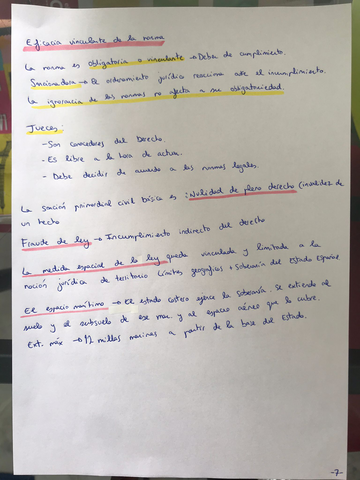 Eficacia vinculante de la norma
La norma es obligatoria o vinculante → Deber de cumplimiento.
Sancionadora → El ordenamiento jurídico reacciona ante el incumplimiento.
La ignorancia de las normas no afecta a su obligatoriedad.
Jueces:
- Son conocedores del Derecho.
- Es libre a la hora de actuar.
- Debe decidir de acuerdo a las normas legales.
La sanción primordial civil básica es: Nulidad de pleno derecho (invalidez de
un hecho
Fraude de ley → Incumplimiento indirecto del derecho
La medida espacial de la ley queda vinculada y limitada a la
noción jurídica de territorio (límites geográficos + Soberanía del Estado Español
El espacio marítimo → El estado costero ejerce la soberanía. Se extiende al
suelo y al subsuelo de ese mar y al espacio aéreo que lo cubre.
Ext. máx → 12 millas marinas a partir de la base del Estado.
-7-